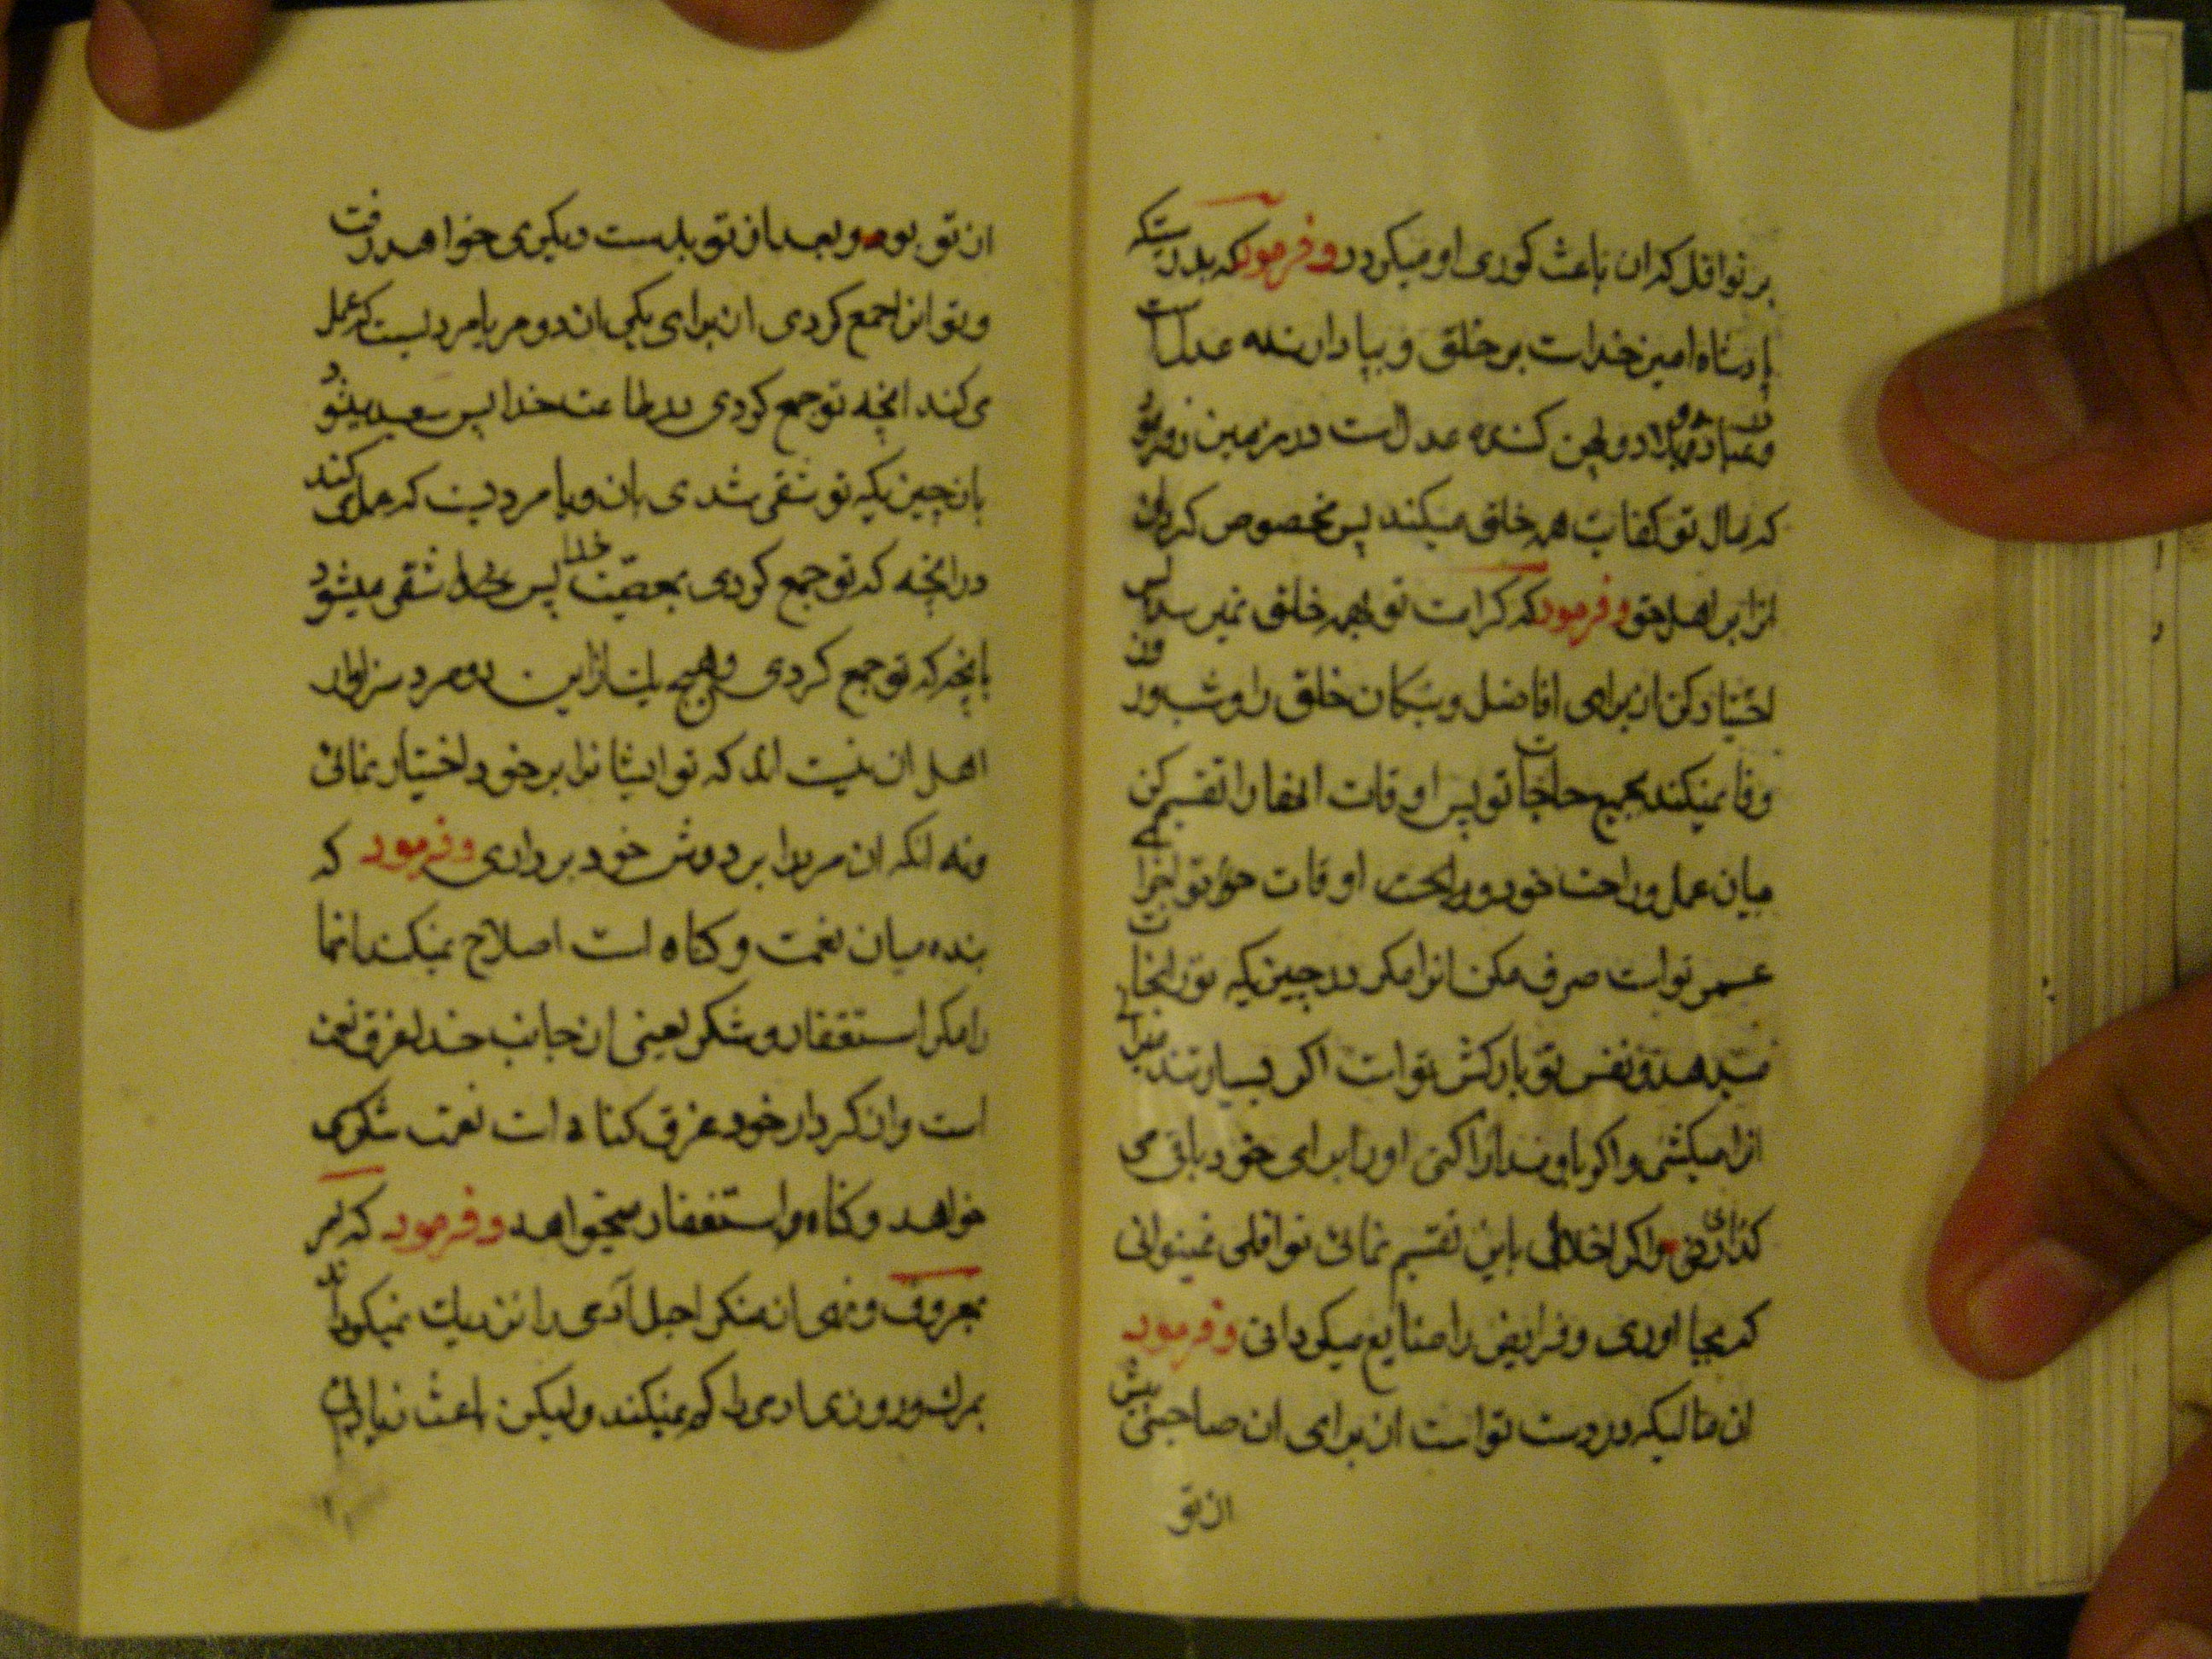 بر نوافل که ان باعث کوری او میکردد و فرمود که بدرستیکه
پادشاه امین خداست بر خلق و بپا دارنده عدلست
کننده عدل است در زمین و فرمود
که مال تو کفایت همه خلق میکند پس مخصوص کردان
انرا بر اهل حق و فرمود که کرامت تو بهمه خلق نمیرسد پس
اختیار کن از برای افاضل و نیکان خلق را و شب و روز
وفا نمیکند بجمیع حاجات تو پس اوقات انها را تقسیم کن
میان عمل و راحت خود و اوقات تو اجزای
عمر تو است صرف مکن انرا مکر در چیزیکه تو را نجات
میدهد و نفس تو بارکش تو است اکر بسیار تند میرانی
انرا میکشی و اکر با او مدارا کنی او را برای خود باقی می
کذاری و اکر اخلال باین تقسیم نمائی نوافلی نمیتوانی
که بجا اوری و فرایض را ضایع میکردانی و فرمود
ان مالیکه در دست تو است از برای ان صاحبی پیش
از تو
از تو بود و بعد از تو بدست دیکری خواهد رفت
و تو انرا جمع کردی از برای یکی از دو مرد یا مردیست که عمل
می کند انچه تو جمع کردی در طاعت خدا پس سعید میشود
بان چیزیکه تو شقی شدی بان و یا مردیست که عمل میکند
در انچه که تو جمع کردی بمعصیت خدا پس شقی میشود
بانچه که تو جمع کردی و هیچ یک از این دو مرد سزاوار
اهل ان نیست اند که تو ایشانرا بر خود اختیار نمائی
و نه انکه ان مرد را بر دوش خود برداری و فرمود که
بنده میان نعمت و کناه است اصلاح نمیکند انها
را مکر استغفار و شکر یعنی از جانب خدا غرق نعمت
است و از کردار خود غرق کناه است نعمت شکری
خواهد و کناه استغفار میخواهد و فرمود که امر
بمعروف و نهی از منکر اجل آدمی را نزدیک نمیکرداند
بمرک و روزی ادمی را کم نمیکند ولیکن باعث زیادتی